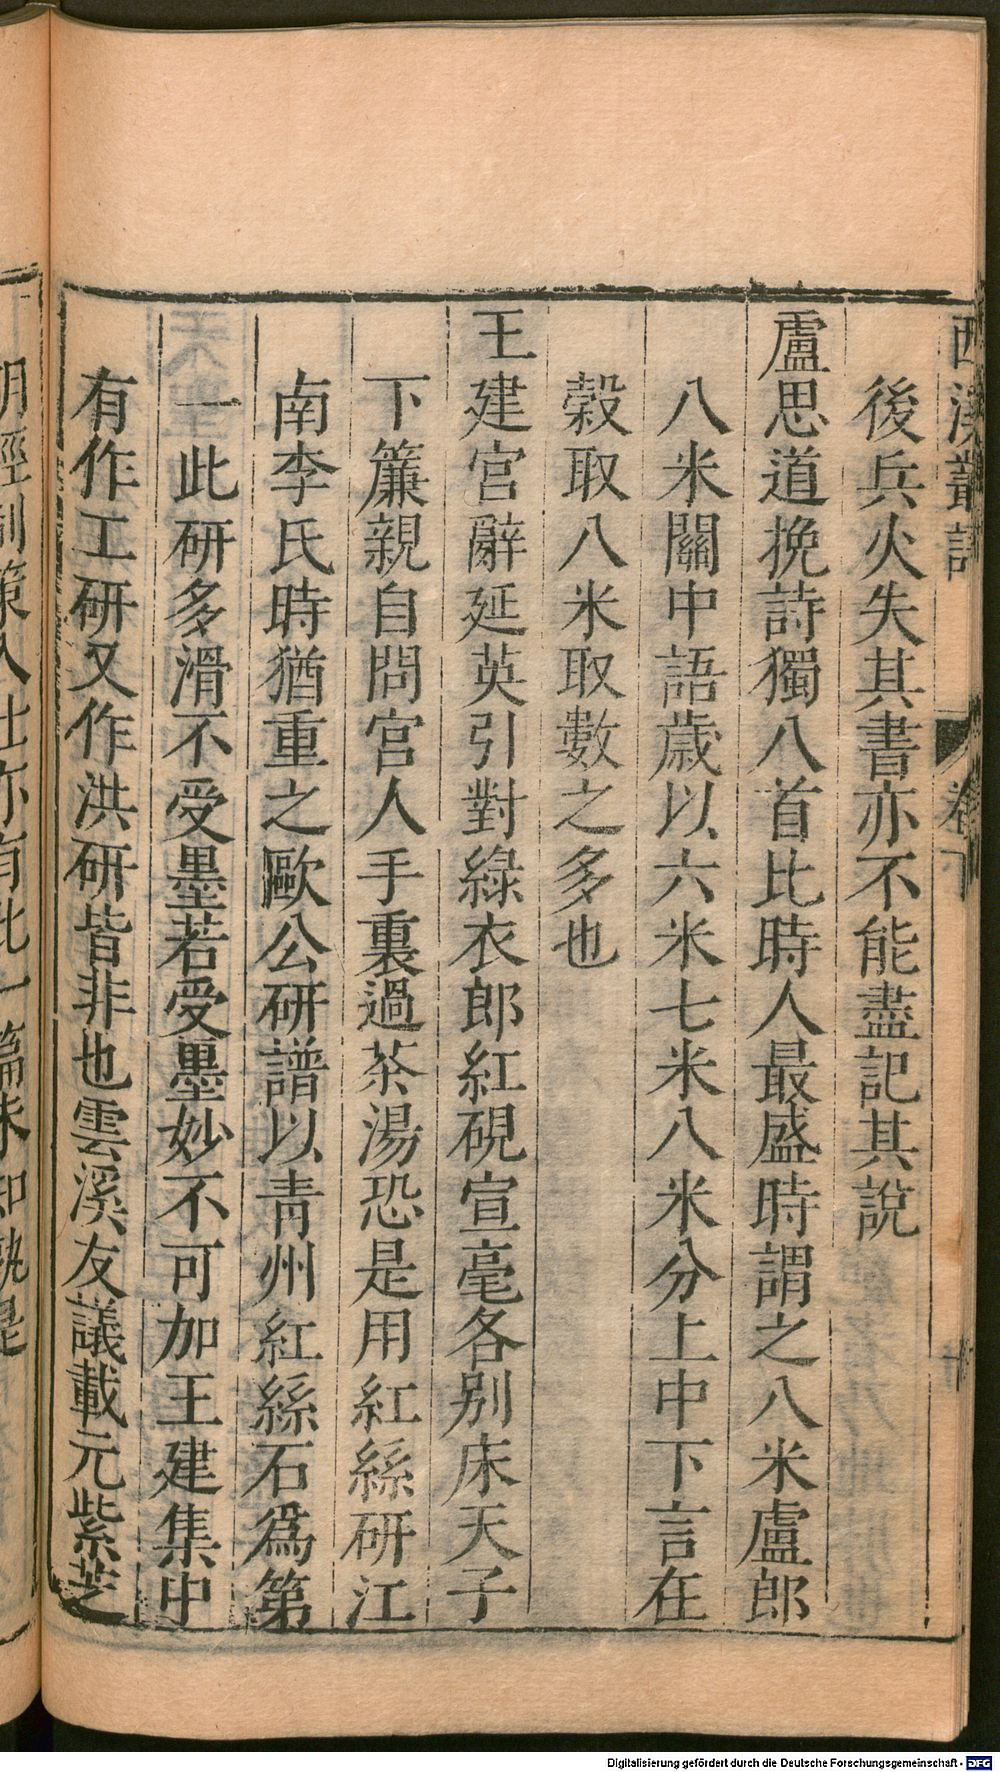 西溪叢語 卷下
後兵火失其書亦不能盡記其說
盧思道挽詩獨八首比時人最盛時謂之八米盧郎
八米關中語歲以六米七米八米分上中下言在
穀取八米取數之多也
王建宮辭延英引對綠衣郎紅硯宣毫各別床天子
下簾親自問宮人手裏過茶湯恐是用紅絲研江
南李氏時猶重之歐公研譜以青州紅絲石為第
一此研多滑不受墨若受墨妙不可加王建集中
有作工研又作洪研皆非也雲溪友議載元紫芝
明經制策入仕亦有此一篇未知孰是
Digitalisierung gefördert durch die Deutsche Forschungsgemeinschaft - DFG